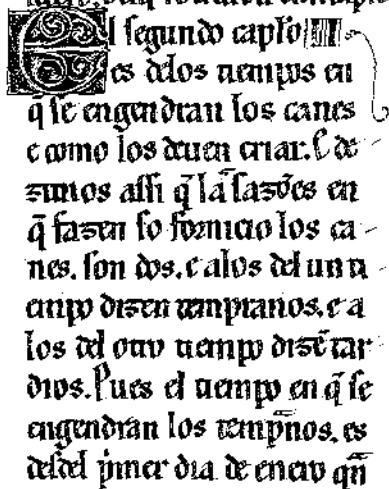 El segundo capło
es delos tienpos en
q̃ se engendran los canes
e como los deuen criar. E de
zimos assi q̃ la sazões en
q̃ fazen so fornicio los ca-
nes. son dos. e alos del un ti-
enpo dizen tempranos. e a
los del otro tienpo dizẽ tar-
dios. Pues el tienpo en q̃ se
engendran los temp̃nos. es
desdel p̃mer dia de enero q̃n